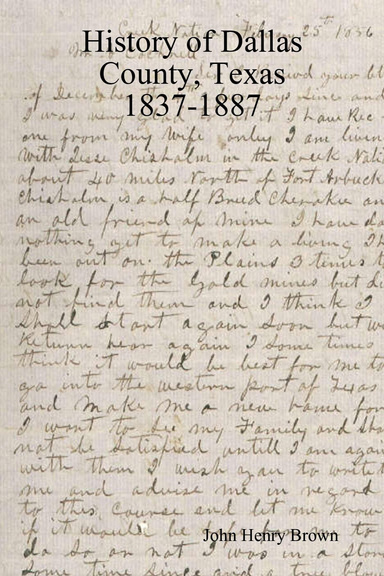 History of Dallas
County, Texas
1837-1887
Creek Nation 25th 1856
of December
I was very I have Rec
one from my wife only I am livin
with Jesse Chisholm in the Creek Nati
about 40 miles North of Fort Arbuck
Chisholm is a half Breed Cherokee an
an old friend of mine I have do
nothing yet to make a living I h
been out on the Plains 3 times t
look for the Gold mines but di
not find them and I think I
Shall Start again Soon but w
Return hear again I Some times
think it would be best for me to
go into the western part of Texas
and make me a new name for
I want to See my Family and Sha
not be Satisfied untill I am again
with them I wish you to write t
me and advise me in regard
to this course and let me know
if it would be for me to
John Henry Brown
do So or not I was in a Stor
Some time Since and a tree blow